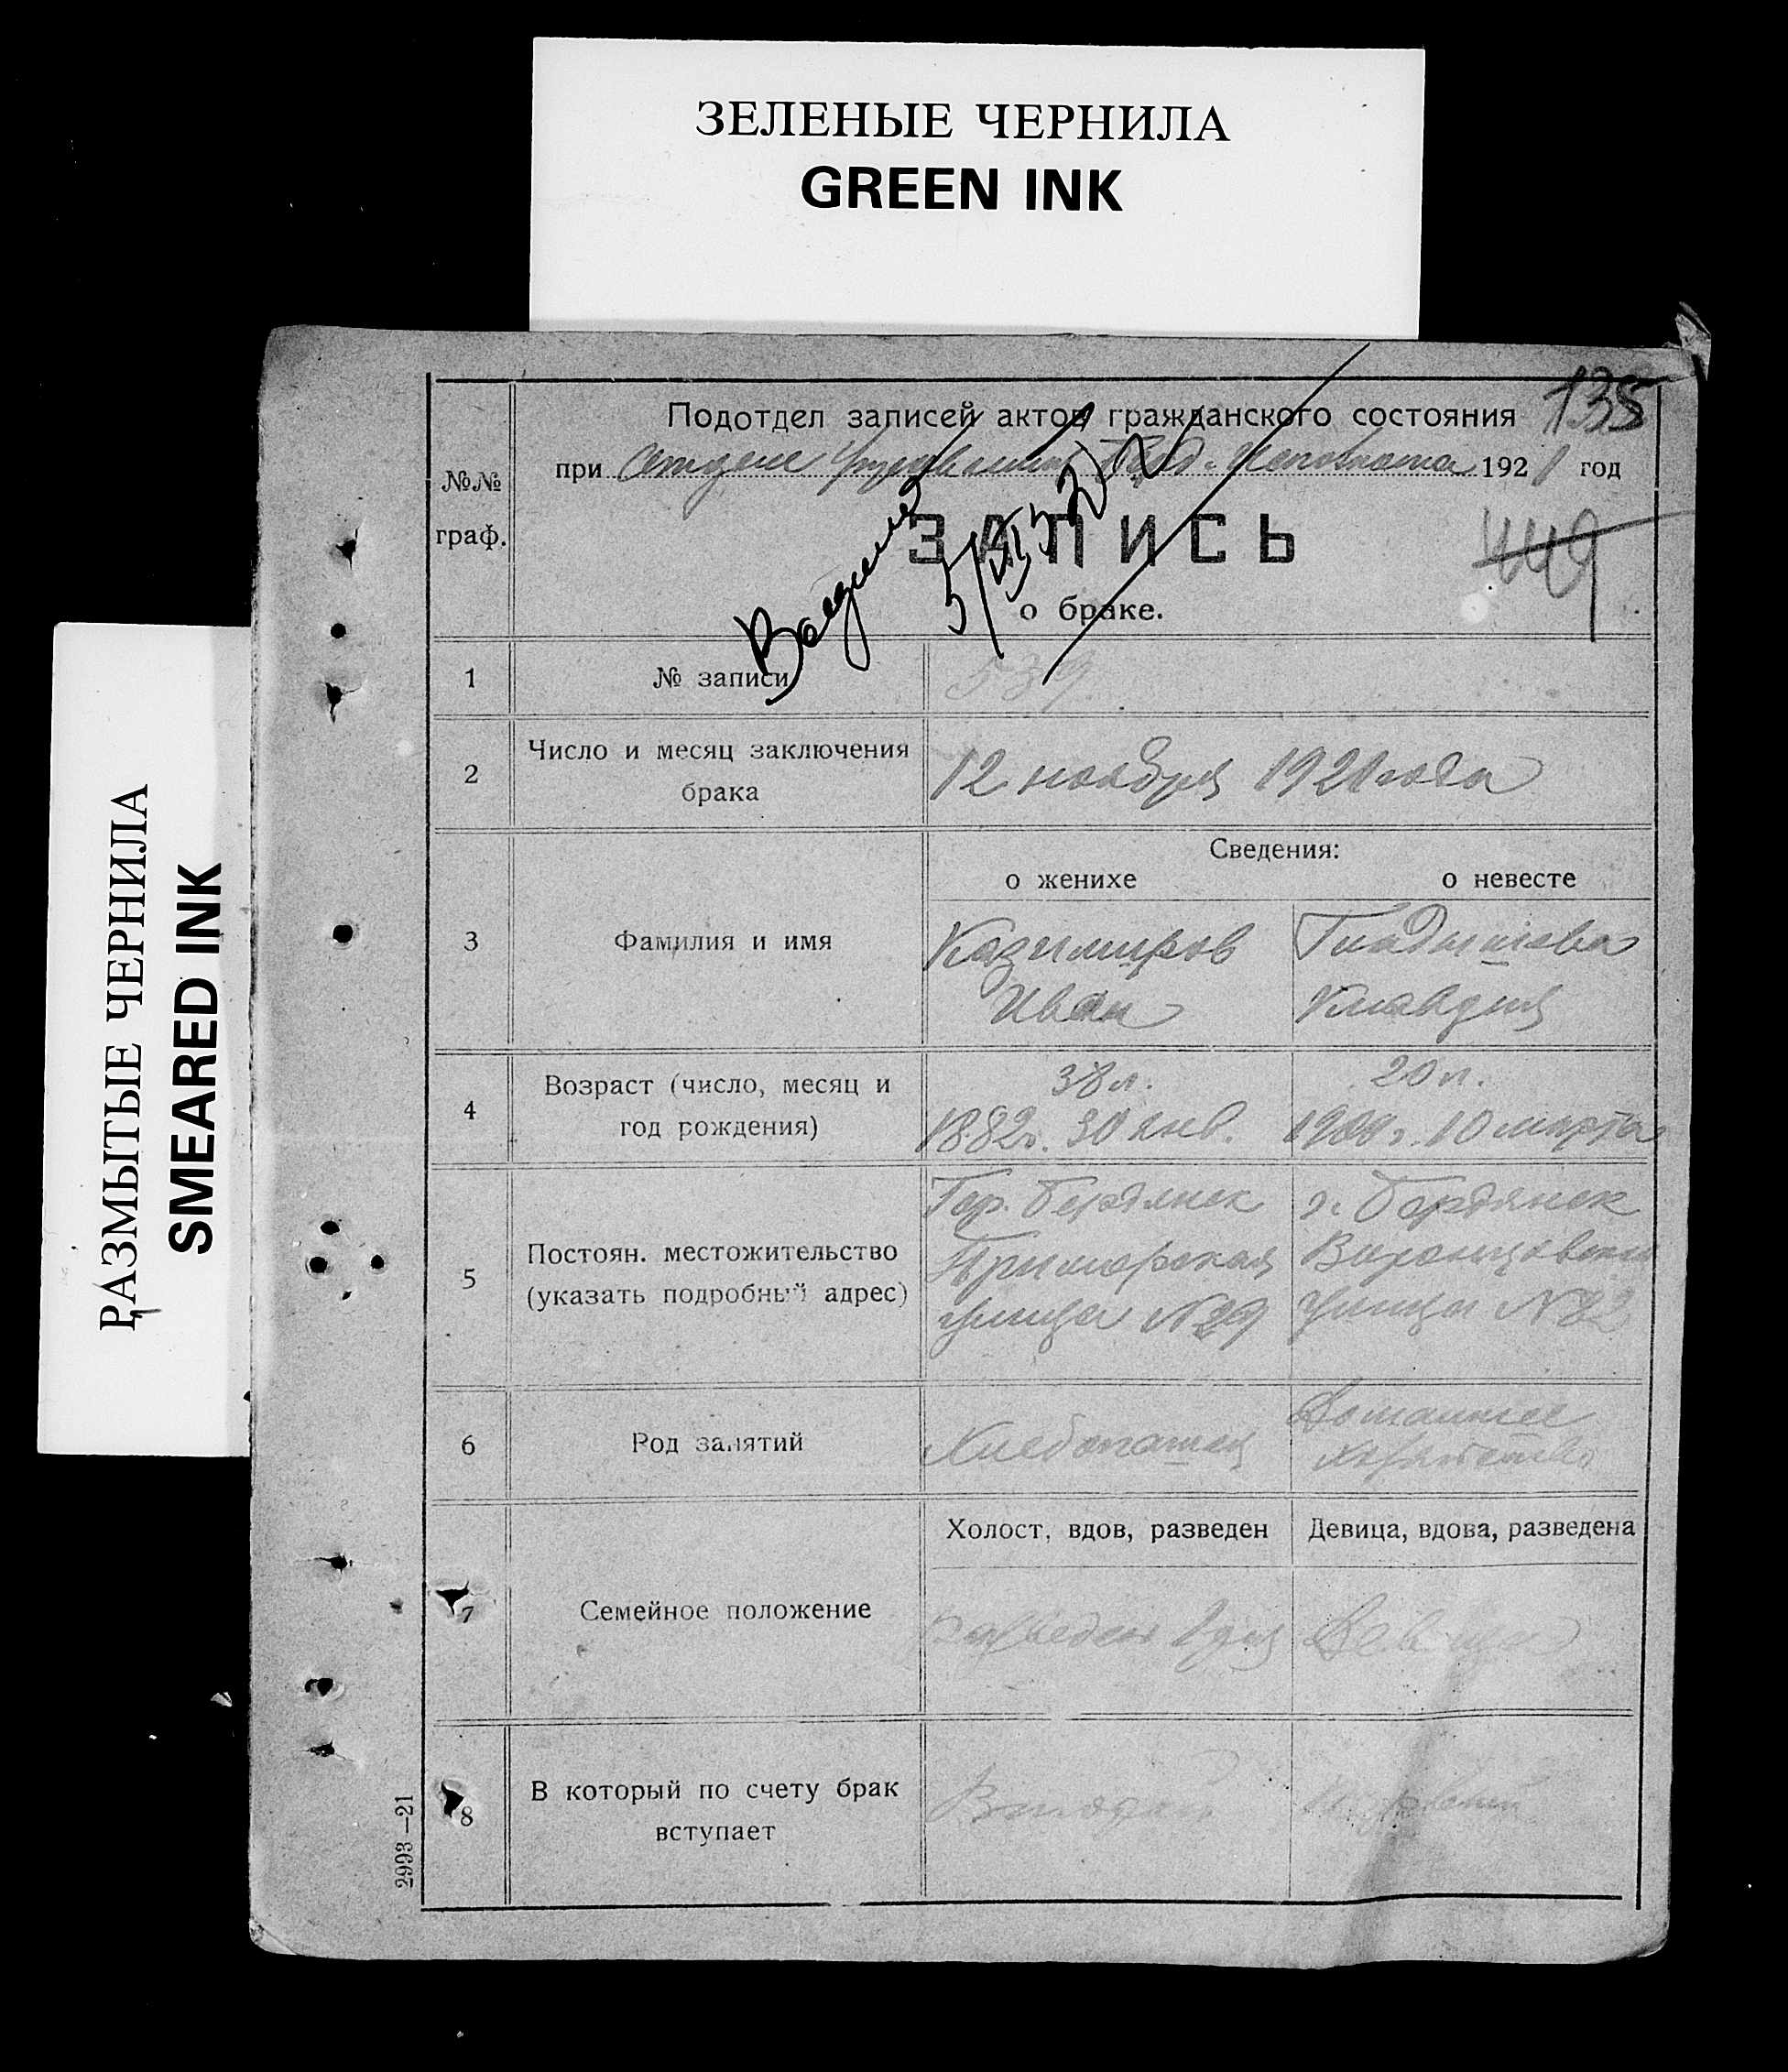 ЗЕЛЕНЫЕ ЧЕРНИЛА
GREEN INK
РАЗМЫТЫЕ ЧЕРНИЛА
SMEARED INK
135
Подотдел записей актов гражданского состояния
при Отделе Управления 1921 год
№№ граф.
ЗАПИСЬ
449
о браке.
1 № записи 539.
2 Число и месяц заключения брака 12 ноября 1921 года
Сведения:
о женихе о невесте
3 Фамилия и имя
Казимиров
Иван
Клавдия
4 Возраст (число, месяц и год рождения)
38 л. 20 л.
1882 г. 30 янв. 10 марта
5 Постоян. местожительство (указать подробный адрес)
Гор. Бердянск г. Бердянск
Приморская
улица N 29 улица N 82
6 Род занятий
Хлебопашец
Домашнее
хозяйство
Холост, вдов, разведен Девица, вдова, разведена
7 Семейное положение
разведен Девица
8 В который по счету брак вступает
Второй Первый
2993—21